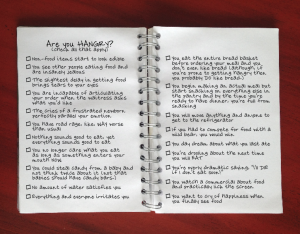 Are you HANGRY?
(check all that apply)
Non-food items start to look edible
You see other people eating food and
are insanely jealous
The slightest delay in getting food
brings tears to your eyes
You are incapable of articulating
your order when the waitress asks
what you'd like
The cries of a frustrated newborn
perfectly parallel your emotion
You have road rage, like, way worse
than usual
Nothing sounds good to eat, yet
everything sounds good to eat
You no longer care what you eat
as long as something enters your
mouth NOW
You could steal candy from a baby and
not think twice about it (not that
babies should have candy bars.)
No amount of water satisfies you
Everything and everyone irritates you
You eat the entire bread basket
before ordering your meal and you
don't even like bread (although, if
you're prone to getting hangry then
you probably DO like bread.)
You begin making an actual meal but
start snacking on everything else in
the pantry and by the time you're
ready to have dinner, you're full from
snacking
You mow over anything and anyone to
get to the refrigerator
If you had to compete for food with a
wild bear, you would win.
You day dream about what you last ate
You're drooling about the next time
you can EAT
You're overly dramatic saying, "I'll DIE
if I don't eat soon!"
You watch a commercial about food
and practically lick the screen
You want to cry of happiness when
you finally see food